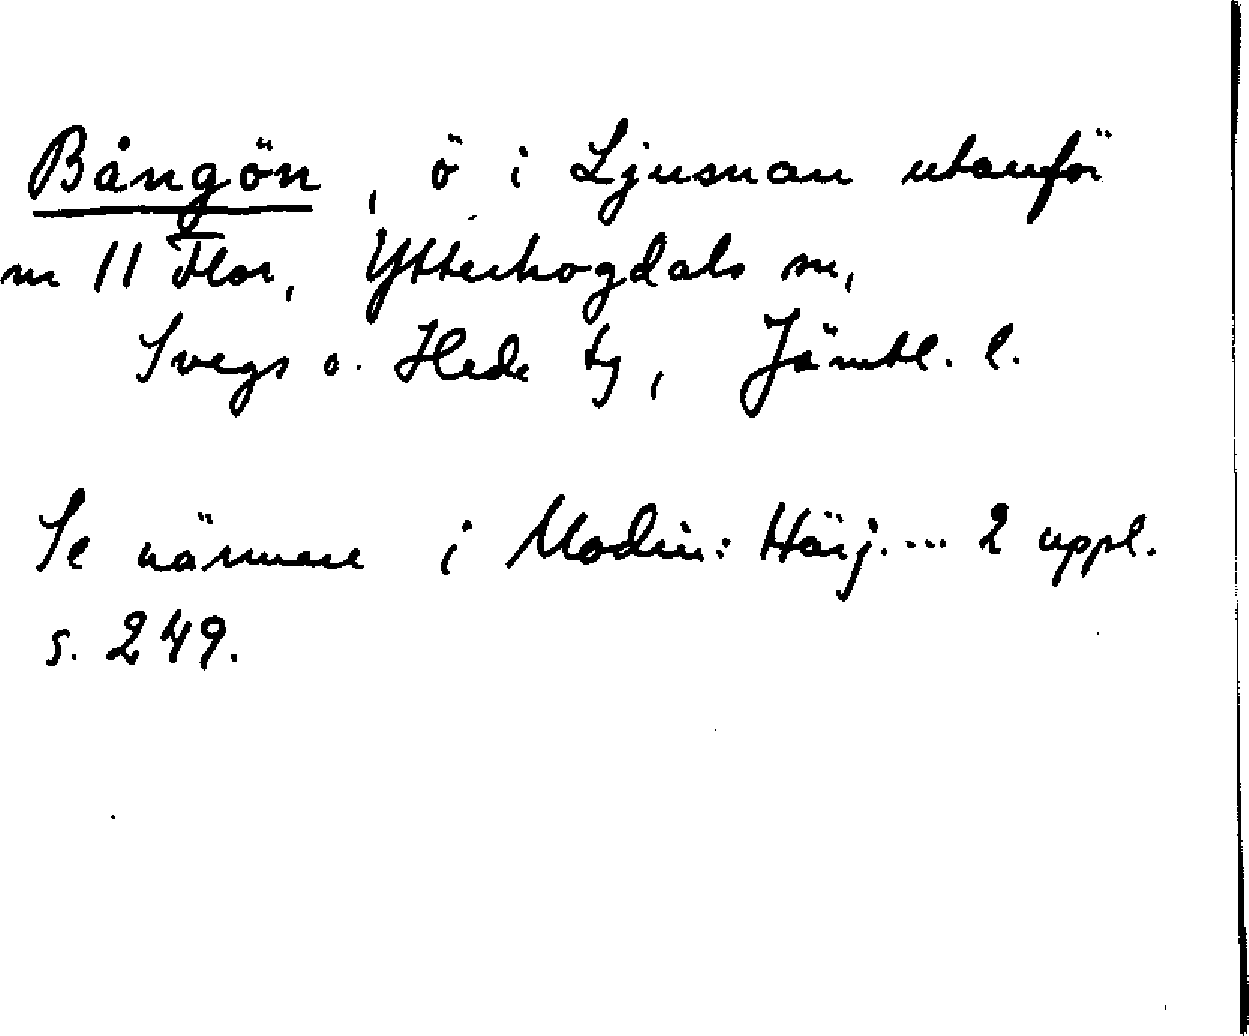 Bångön, ö i Ljusnan utanför
nr 11 Flor, Ytterhogdals sn,
Svegs o. Hede tg, Jämtl. l.
Se närmare i Modin: Härj. ... 2 uppl.
s. 249.